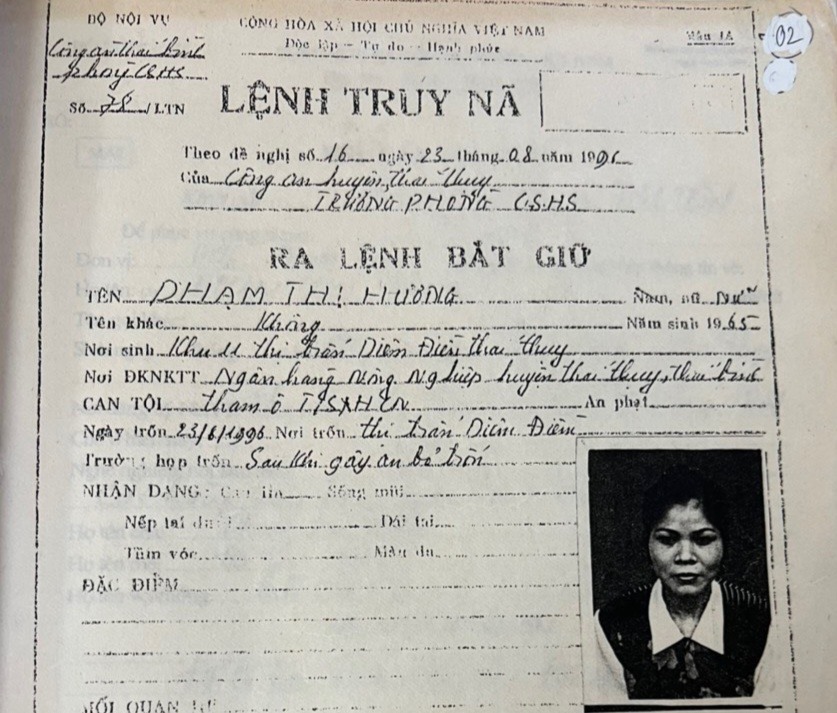 BỘ NỘI VỤ
CỘNG HÒA XÃ HỘI CHỦ NGHĨA VIỆT NAM
Độc lập - Tự do - Hạnh phúc
Công an thái bình
phòng CSHS
Số 78/LTN
02
LỆNH TRUY NÃ
Theo đề nghị số 16 ngày 23 tháng 08 năm 1996
Của Công an huyện thái thụy
TRƯỞNG PHÒNG C.S.H.S
RA LỆNH BẮT GIỮ
TÊN PHẠM THỊ HƯƠNG Nam, nữ Nữ
Tên khác Không Năm sinh 1965
Nơi sinh Khu II thị trấn Diêm Điền thái thụy
Nơi ĐKNKTT Ngân hàng Nông Nghiệp huyện thái thụy, thái bình
CAN TỘI tham ô TSXHCN Án phạt
Ngày trốn 23/6/1996 Nơi trốn thị trấn Diêm Điền
Trường hợp trốn Sau khi gây án bỏ trốn
NHẬN DẠNG: Cao Sống mũi
Nếp tai Dái tai
Tầm vóc Màu da
ĐẶC ĐIỂM
MỐI QUAN HỆ